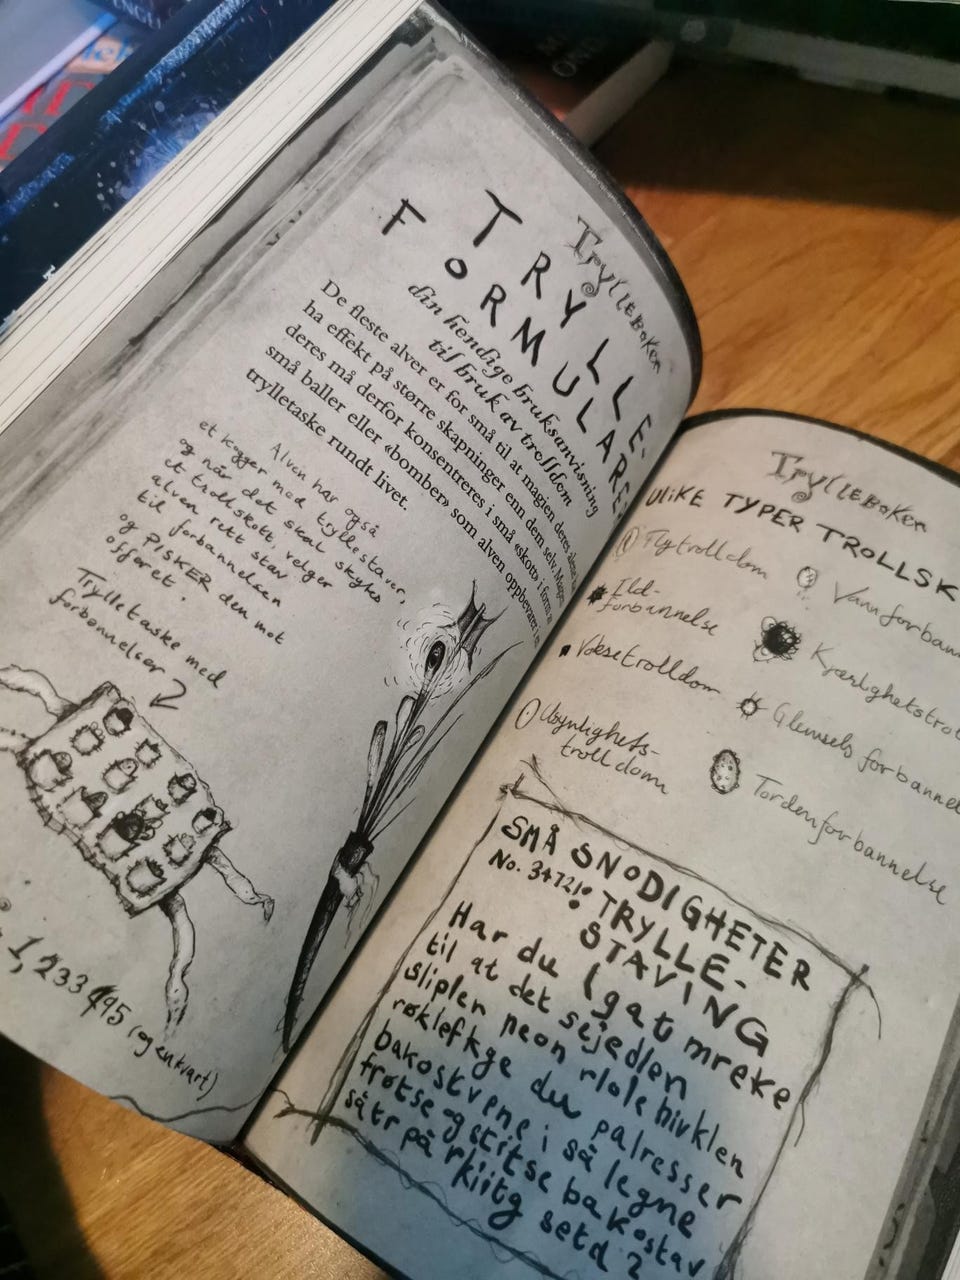 Trylleboken
TRYLLE-
FORMULARER
din hendige bruksanvisning
til bruk av trolldom
De fleste alver er for små til at magien deres
ha effekt på større skapninger enn dem selv. Magien
deres må derfor konsentreres i små «skott» i form av
små baller eller «bomber» som alven oppbevarer i en
trylletaske rundt livet.
Alven har også
et kogger med tryllestaver,
og når det skal skytes
et trollskott, velger
alven rett stav
til forbannelsen
og PISKER den mot
offeret.
Trylletaske med
forbannelser
1,233 995 (og en kvart)
Trylleboken
ULIKE TYPER TROLLSK
Flytrolldom
Ild-
forbannelse
Voksetrolldom
Usynlighets-
trolldom
Vannforban
Kjærlighetstrol
Glemsels forbannel
Tordenforbannelse
SMÅ SNODIGHETER
No. 34721: TRYLLE-
STAVING
Har du lgat mreke
til at det sejedlen
slipler neon rlole hivklen
røklefkge du palresser
bakostvene i så legne
frøtse og sitse bakostav
såtr på rkiitg setd?